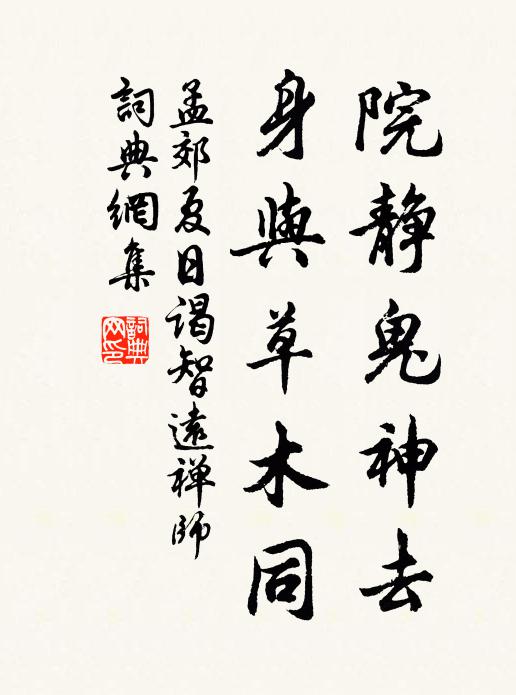 院静鬼神去
身與草木同
孟郊夏日謁智遠禪師
詞典網集
詞典
网印